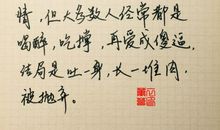 情，但大多数人经常都是
喝醉，吃撑，再爱成傻逼，
结局是吐一身，长一堆肉，
被抛弃。